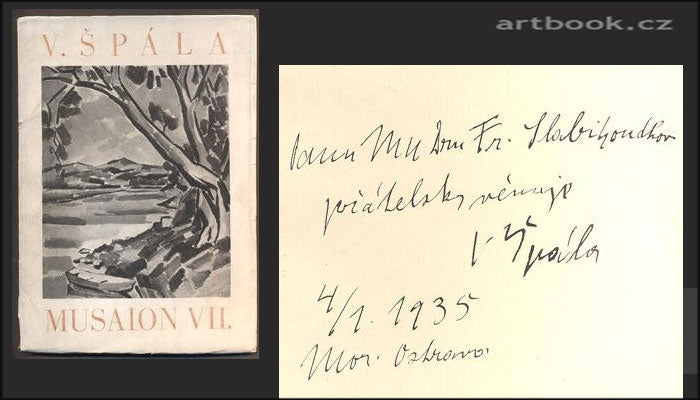 artbook.cz
V. ŠPÁLA
MUSAION VII.
Panu MU Dru Fr. Slabihoudkovi
přátelsky věnuje
V Špála
4/1. 1935
Mor. Ostrava.